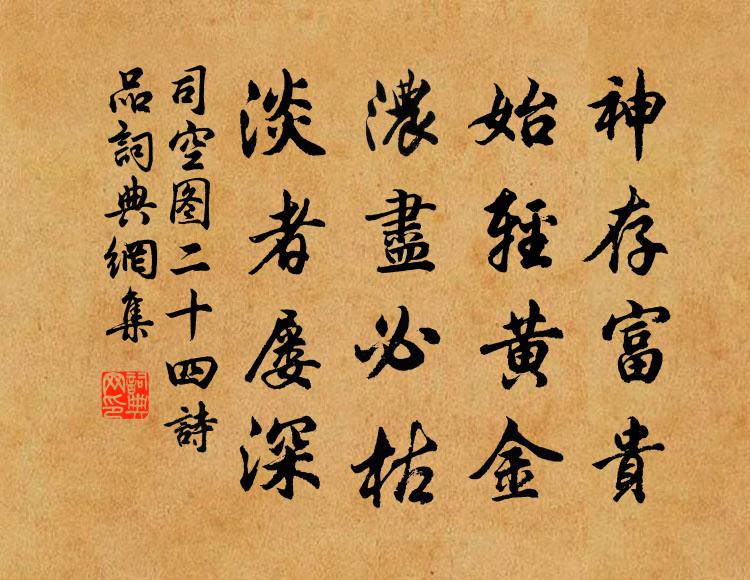 神存富貴
始輕黃金
濃盡必枯
淡者屡深
司空图二十四詩
品詞典網集
詞典
网印